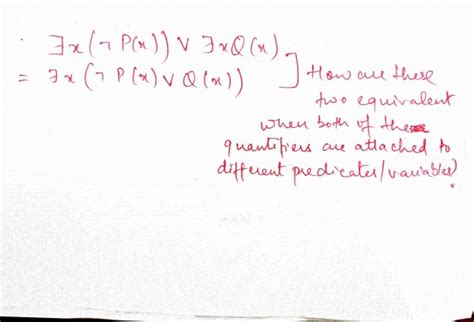 ∃x(¬P(x)) ∨ ∃xQ(x)
= ∃x(¬P(x) ∨ Q(x))
How are these
two equivalent
when both of these
quantifiers are attached to
different predicates/variables?